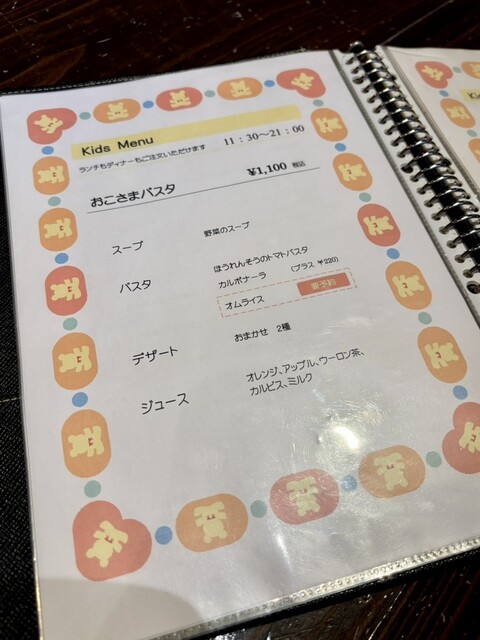 Kids Menu
ランチもディナーもご注文いただけます
11:30～21:00
おこさまパスタ ¥1,100 税込
スープ 野菜のスープ
パスタ ほうれんそうのトマトパスタ
カルボナーラ (プラス ¥220)
オムライス 要予約
デザート おまかせ 2種
ジュース オレンジ、アップル、ウーロン茶、
カルピス、ミルク